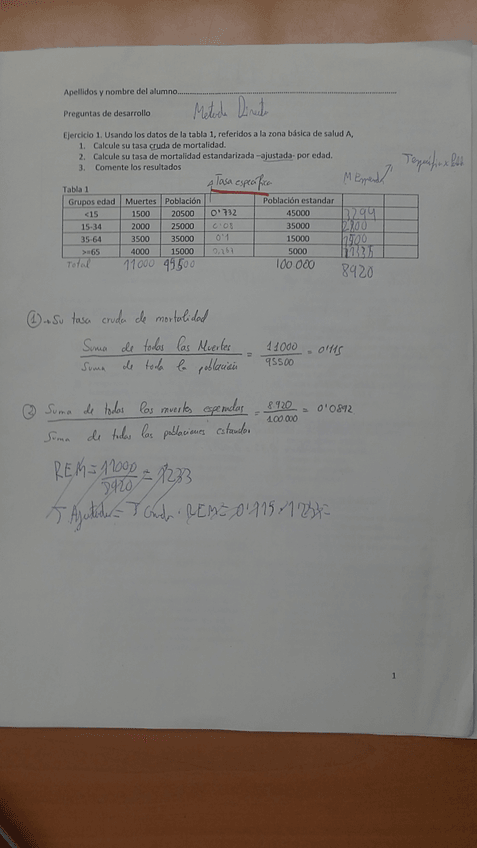 Apellidos y nombre del alumno
Preguntas de desarrollo
Metodo Directo
Ejercicio 1. Usando los datos de la tabla 1, referidos a la zona básica de salud A,
1. Calcule su tasa cruda de mortalidad.
2. Calcule su tasa de mortalidad estandarizada –ajustada- por edad.
3. Comente los resultados
Tasa específica
Tabla 1
Grupos edad Muertes Población Población estandar
<15 1500 20500 45000
15-34 2000 25000 35000
35-64 3500 35000 0'1 15000
>=65 4000 15000 5000
Total 11000 95500 100.000 8920
① Su tasa cruda de mortalidad
Suma de todas las Muertes
Suma de toda la población
= 11000 / 95500 = 0'115
② Suma de todas las muertes esperadas
Suma de todas las poblaciones estandar
= 8.920 / 100.000 = 0'0892
REM = 11000 / 8920 = 1233
T Ajustada = T Cruda · REM = 0'115 · 1233 =
1